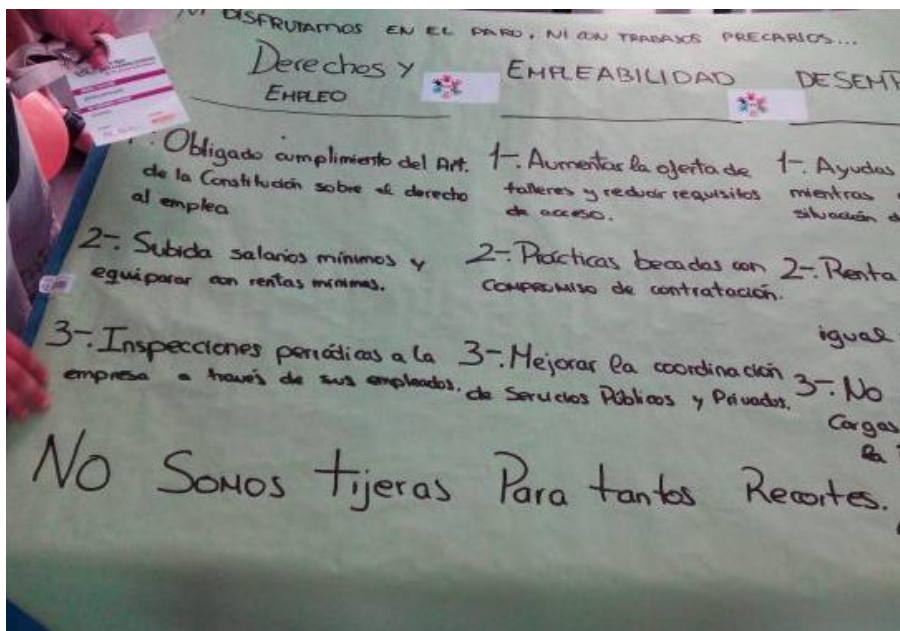 NI DISFRUTAMOS EN EL PARO, NI CON TRABAJOS PRECARIOS...
Derechos y
EMPLEO
1-. Obligado cumplimiento del Art.
de la Constitución sobre el derecho
al empleo
2-. Subida salarios mínimos y
equiparar con rentas mínimas.
3-. Inspecciones periódicas a la
empresa a través de sus empleados.
EMPLEABILIDAD
1-. Aumentar la oferta de
talleres y reducir requisitos
de acceso.
2-. Prácticas becadas con
COMPROMISO de contratación.
3-. Mejorar la coordinación
de Servicios Públicos y Privados.
DESEMP
1-. Ayudas
mientras
situación d
2-. Renta
igual
3-. No
Cargas
la
No SOMOS tijeras Para tantos Recortes.